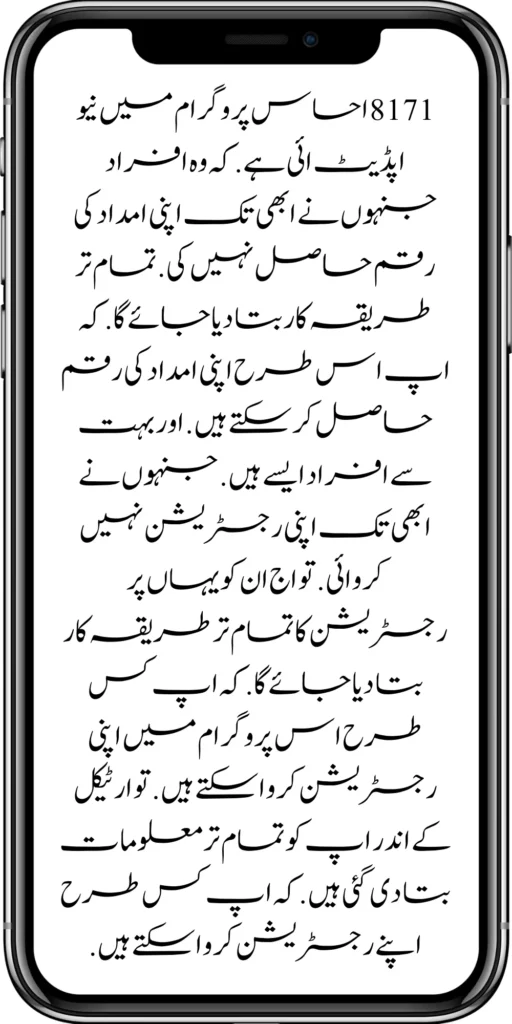 8171احساس پروگرام میں نیو
اپڈیٹ ائی ہے. کہ وہ افراد
جنہوں نے ابھی تک اپنی امداد کی
رقم حاصل نہیں کی. تمام تر
طریقہ کار بتا دیا جائے گا. کہ
اپ اس طرح اپنی امداد کی رقم
حاصل کر سکتے ہیں. اور بہت
سے افراد ایسے ہیں. جنہوں نے
ابھی تک اپنی رجسٹریشن نہیں
کروائی. تو اج ان کو یہاں پر
رجسٹریشن کا تمام تر طریقہ کار
بتا دیا جائے گا. کہ اپ کس
طرح اس پروگرام میں اپنی
رجسٹریشن کروا سکتے ہیں. تو ارٹیکل
کے اندر اپ کو تمام تر معلومات
بتا دی گئی ہیں. کہ اپ کس طرح
اپنے رجسٹریشن کروا سکتے ہیں.